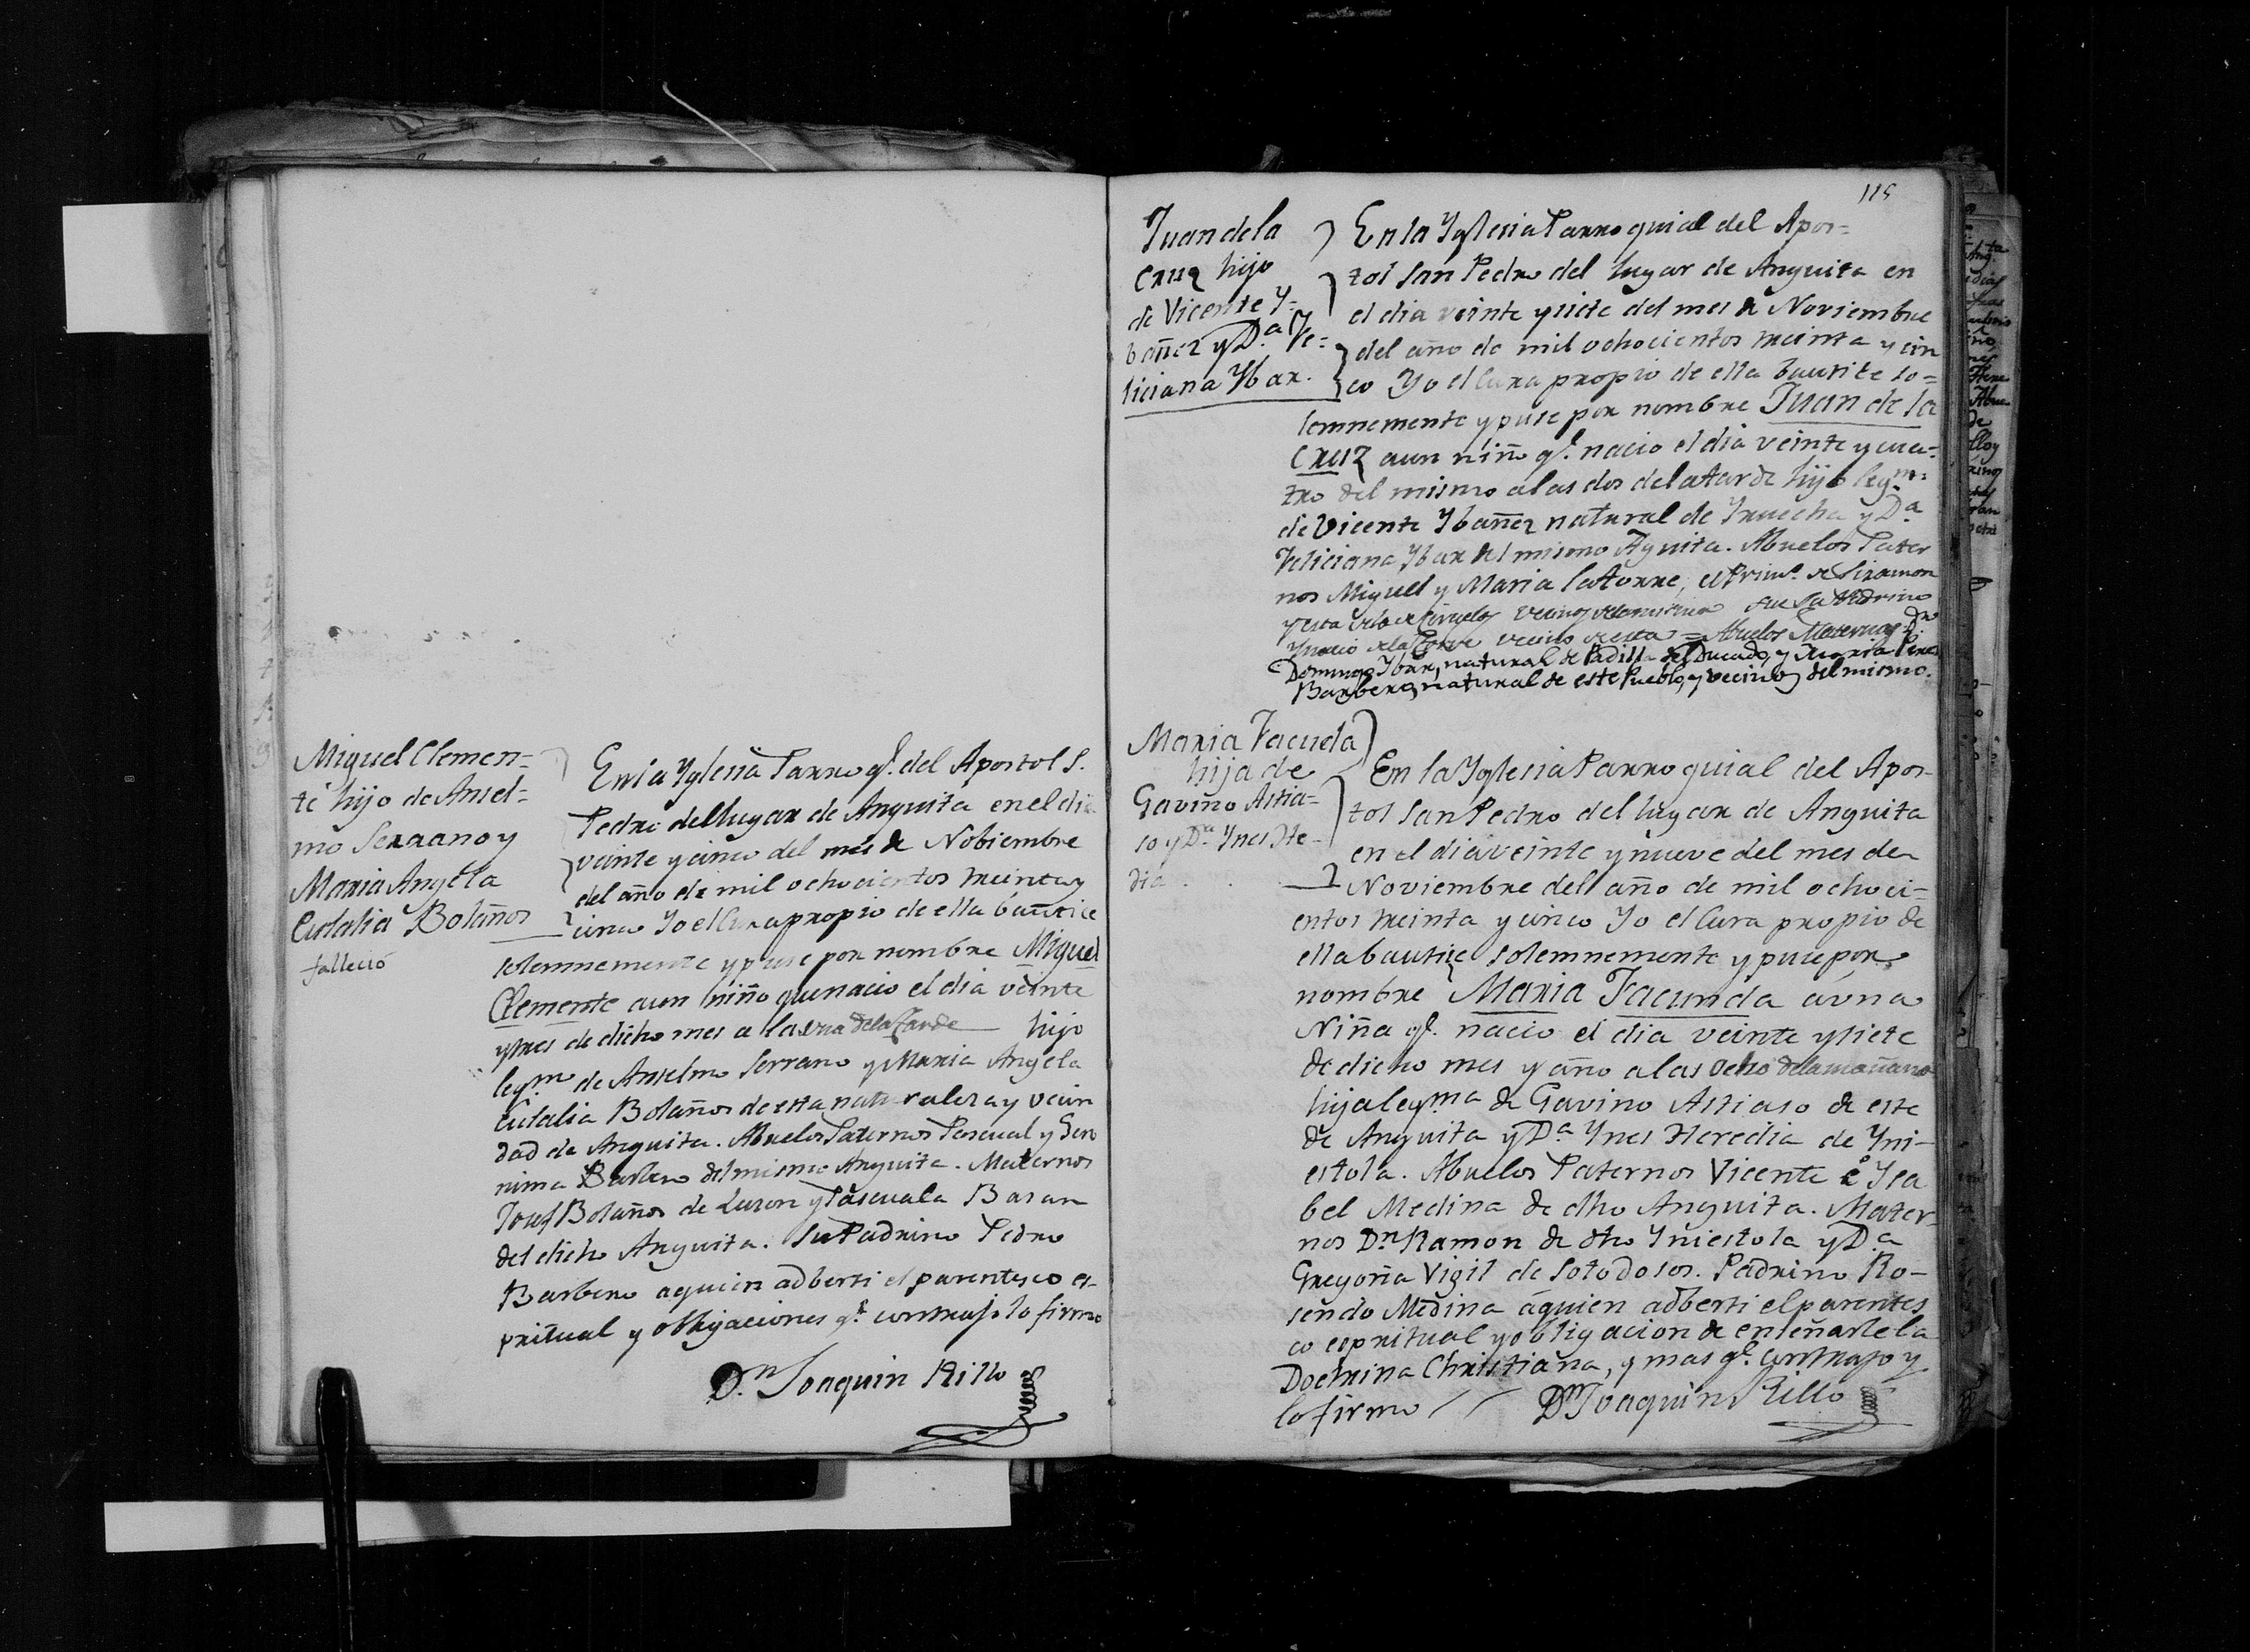 Miguel Clemen=
te hijo de Ansel=
mo Serrano y
Maria Angela
Eulalia Bolaños
falleció
En la Yglesia Parroql. del Apostol S.
Pedro del lugar de Anguita en el dia
veinte y cinco del mes de Nobiembre
del año de mil ochocientos treinta y
cinco Yo el Cura propio de ella bautice
solemnemente y puse por nombre Miguel
Clemente a un niño que nacio el dia veinte
y tres de dicho mes a la una de la tarde hijo
legmo de Anselmo Serrano y Maria Angela
Eulalia Bolaños de esta naturaleza y vecin
dad de Anguita. Abuelos Paternos Pascual y Gero
nima Barbero del mismo Anguita. Maternos
Josef Bolaños de Luzon y Pascuala Bazan
del dicho Anguita. Su Padrino Pedro
Barbero a quien adberti el parentesco es-
pritual y obligaciones ql. contrajo lo firmo
Dn. Joaquin Rillo
115
Juan de la
Cruz hijo
de Vicente Y-
bañez y Da. Fe=
liciana Ybar.
En la Yglesia Parroquial del Apos=
tol San Pedro del lugar de Anguita en
el dia veinte y siete del mes de Noviembre
del año de mil ochocientos treinta y cin
co Yo el Cura propio de ella bautice so=
lemnemente y puse por nombre Juan de la
Cruz a un niño ql. nacio el dia veinte y cua=
tro del mismo a las dos de la tarde hijo legmo.
de Vicente Ybañez natural de Yruecha y Da.
Feliciana Ybar del mismo Aguita. Abuelos Pater
nos Miguel y Maria la Torre, el Primo. de
y esta vecinos Su Padrino
Ygnacio de la Torre vecino de esta = Abuelos Maternos Dn.
Domingo Ybar, natural de Padilla del Ducado, y Maria Perez
Barbero, natural de este Pueblo, y vecinos del mismo.
Maria Facuda
hija de
Gavino Astia=
so y Da. Ynes He-
dia
En la Yglesia Parroquial del Apos-
tol San Pedro del lugar de Anguita
en el dia veinte y nueve del mes de
Noviembre del año de mil ochoci=
entos treinta y cinco Yo el Cura propio de
ella bautice solemnemente y puse por
nombre Maria Facunda a una
Niña ql. nacio el dia veinte y siete
de dicho mes y año a las ocho de la mañana
hija legma de Gavino Astiaso de este
de Anguita y Da. Ynes Heredia de Yni-
estola. Abuelos Paternos Vicente é Ysa
bel Medina de dho Anguita. Mater-
nos Dn. Ramon de dho Yniestola y Da.
Gregoria Vigil de Sotodosos. Padrino Ro-
sendo Medina á quien adberti el parentes
co espritual y obligacion de enseñarle la
Doctrina Christiana, y mas ql. contrajo y
lo firmo Dn Joaquin Rillo